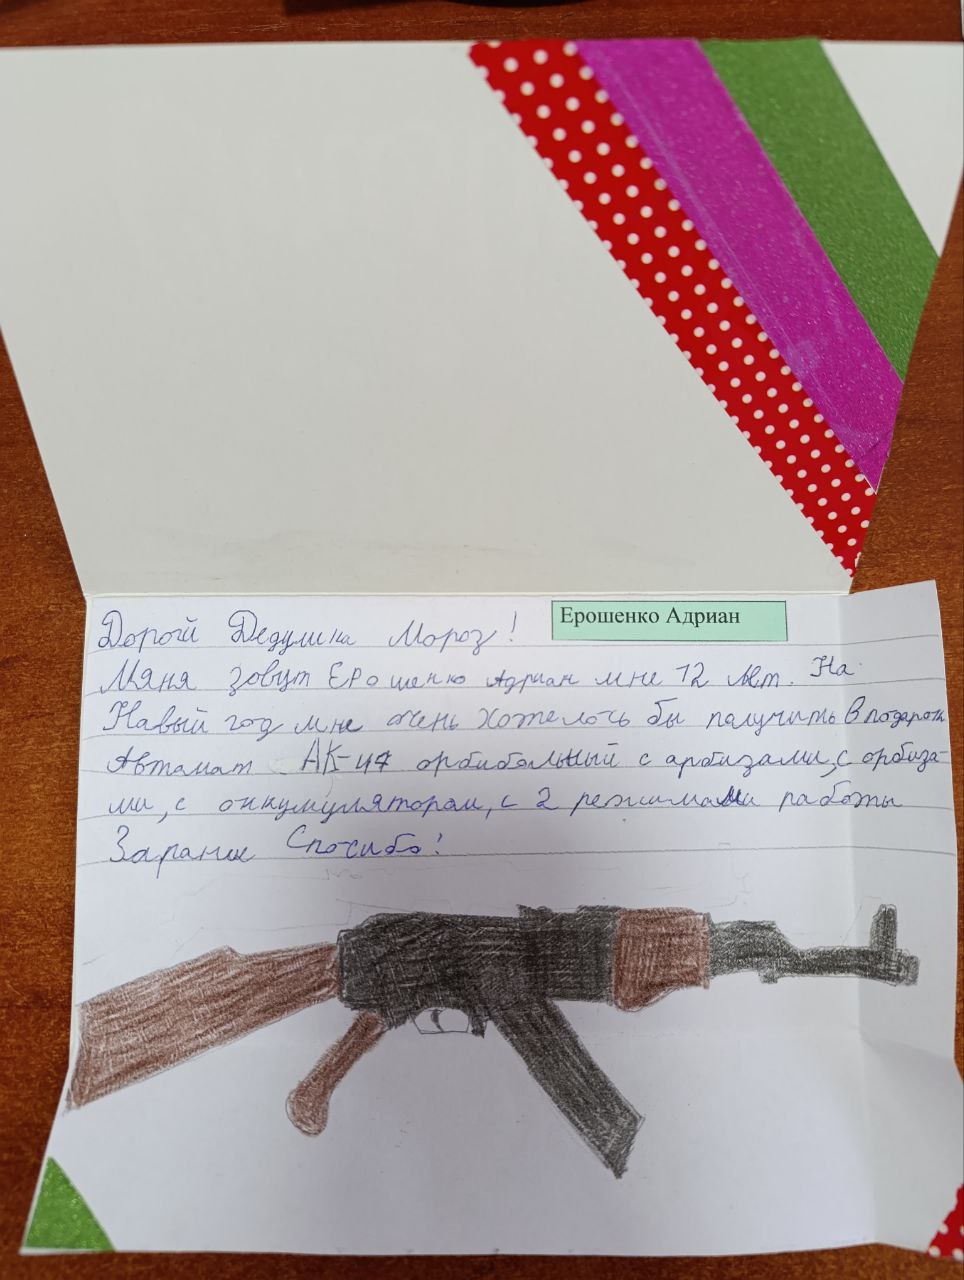 Дорогй Дедушка Мороз!
Ерошенко Адриан
Мяня зовут Ерошенко Адриан мне 12 лет. На
Навый год мне очень хотелось бы палучить в подарок
Автамат АК-47 орбибольный с арбизами, с орбиза-
ми, с аккумулятором, с 2 режимами работы
Зарание Спосибо!